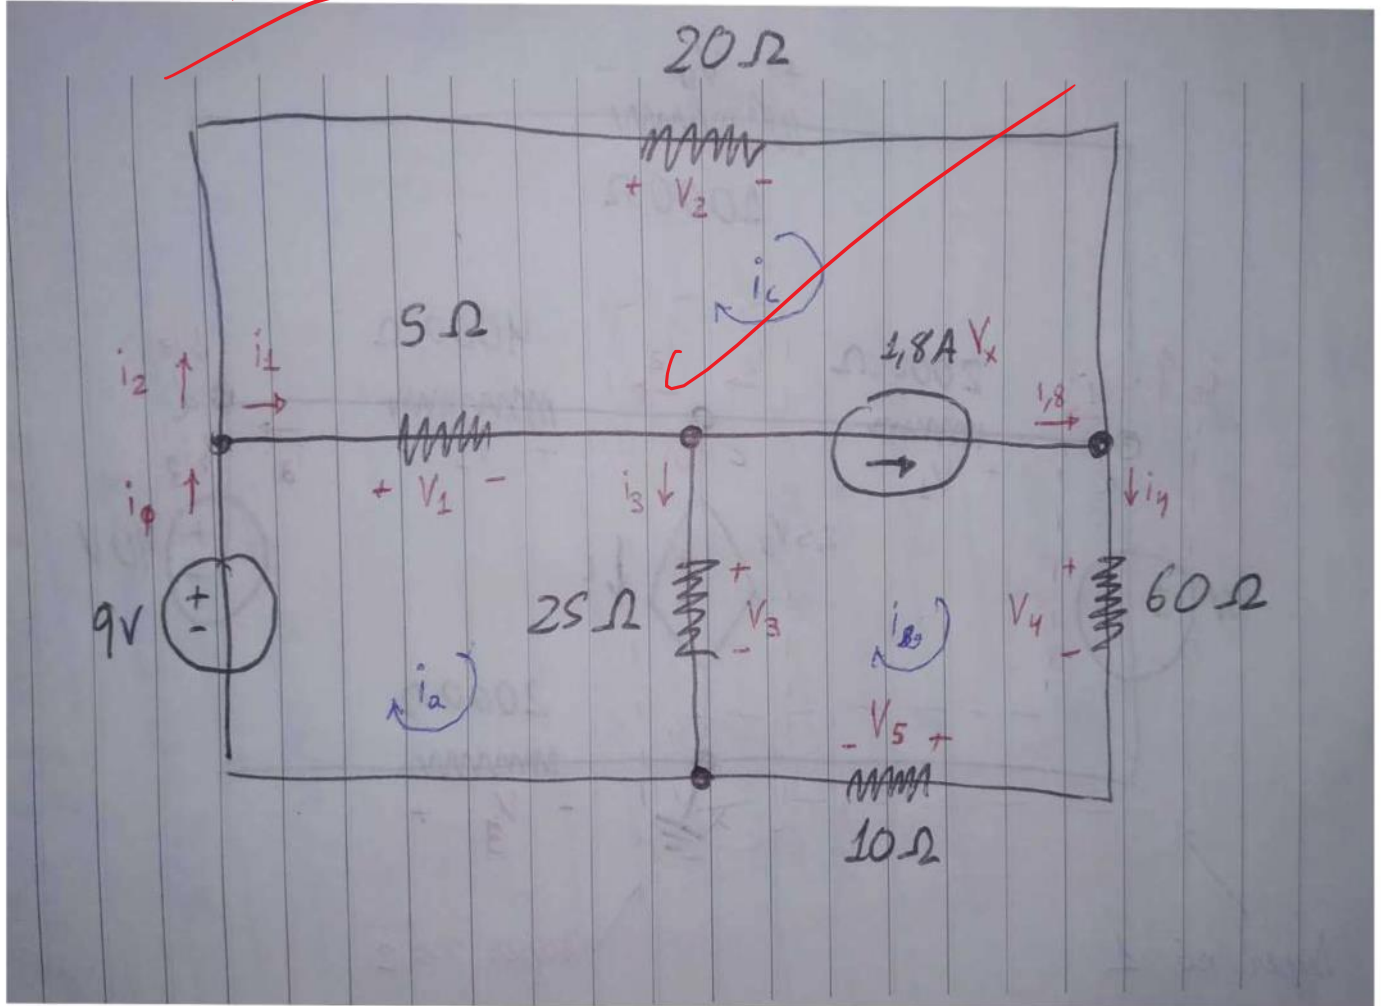 20Ω
+ V2 -
ic
5Ω
1,8A Vx
i2
i1
1,8
+ V1 -
i3
i4
iφ
9V
+
-
25Ω
+
V3
-
iB
V4
+
-
60Ω
ia
- V5 +
10Ω